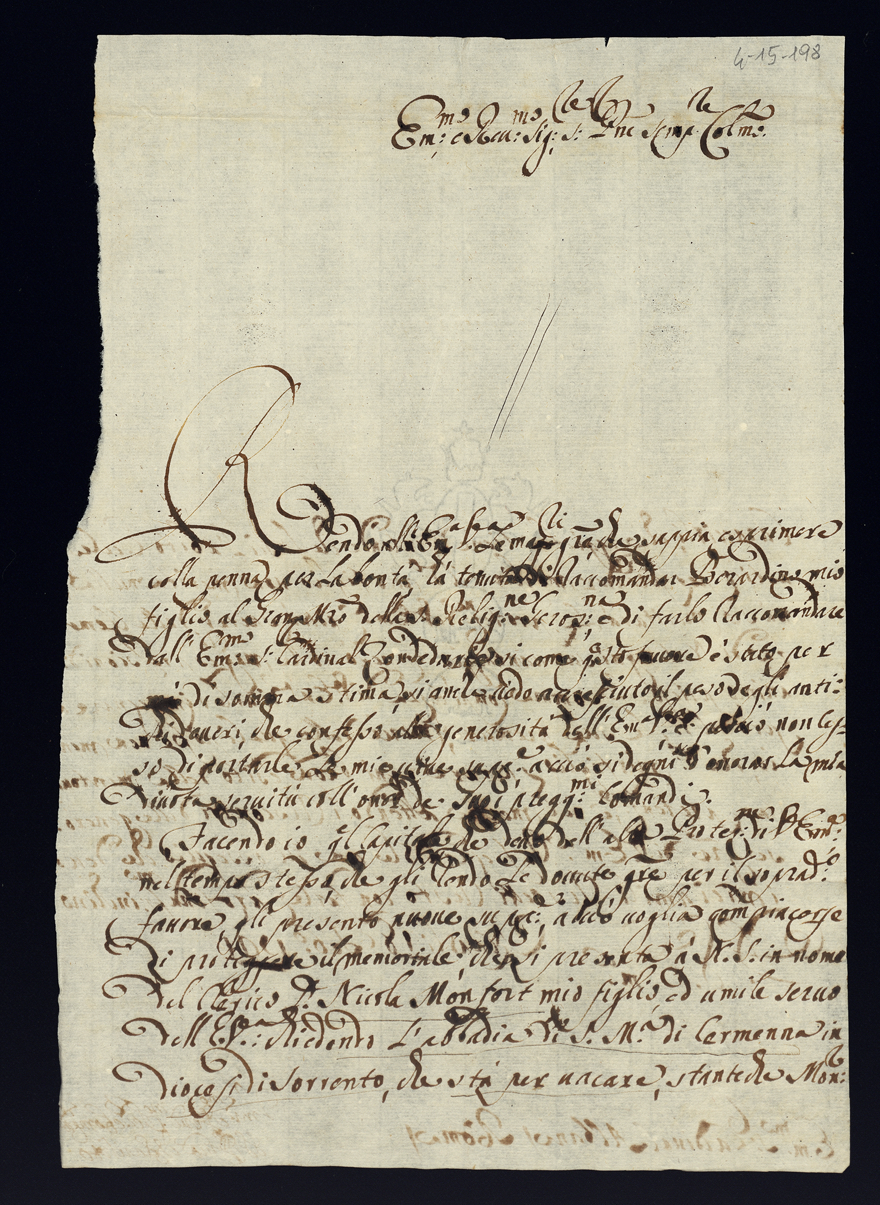 4-15-198
Em:mo e Reu:mo Sig:re S: Pne Semp:re Colmo:
Rendo all' Em:a V:a le magri gre che sappia esprimere
colla penna, per la bontà hà tenuta di raccomandar Berardino mio
figlio al Gran Mro della s: Relig:ne Gerosna: e di farlo raccomandare
dall' Em:mo S: Cardinal si come qsto fauore è stato per
me di somma stima, si anche uedo accresciuto il peso degli anti:
chi doueri che confesso alla generosità dell' Em:a V:a perciò non ces:
so di portarle le mie uiue supe: acciò si degni d'honorar la mia
diuota seruitù coll' onor de Suoi pregg:mi Comandi.
Facendo io ql Capitale che deuo dell' alta Protez:ne di V: Em:a
nel tempo stesso che gli rendo le douute gre per il soprado:
fauore, gli presento nuoue supe:, acciò uoglia compiacersi
di proteggere il memoriale che si presenta à N. S. in nome
del Clerico D. Nicola Monfort mio figlio, ed umile seruo
dell' E.V.a: chiedendo l'abbadia di S. M:a di Cermenna in
Diocesi di Sorrento, che stà per uacare, stante che Mon: